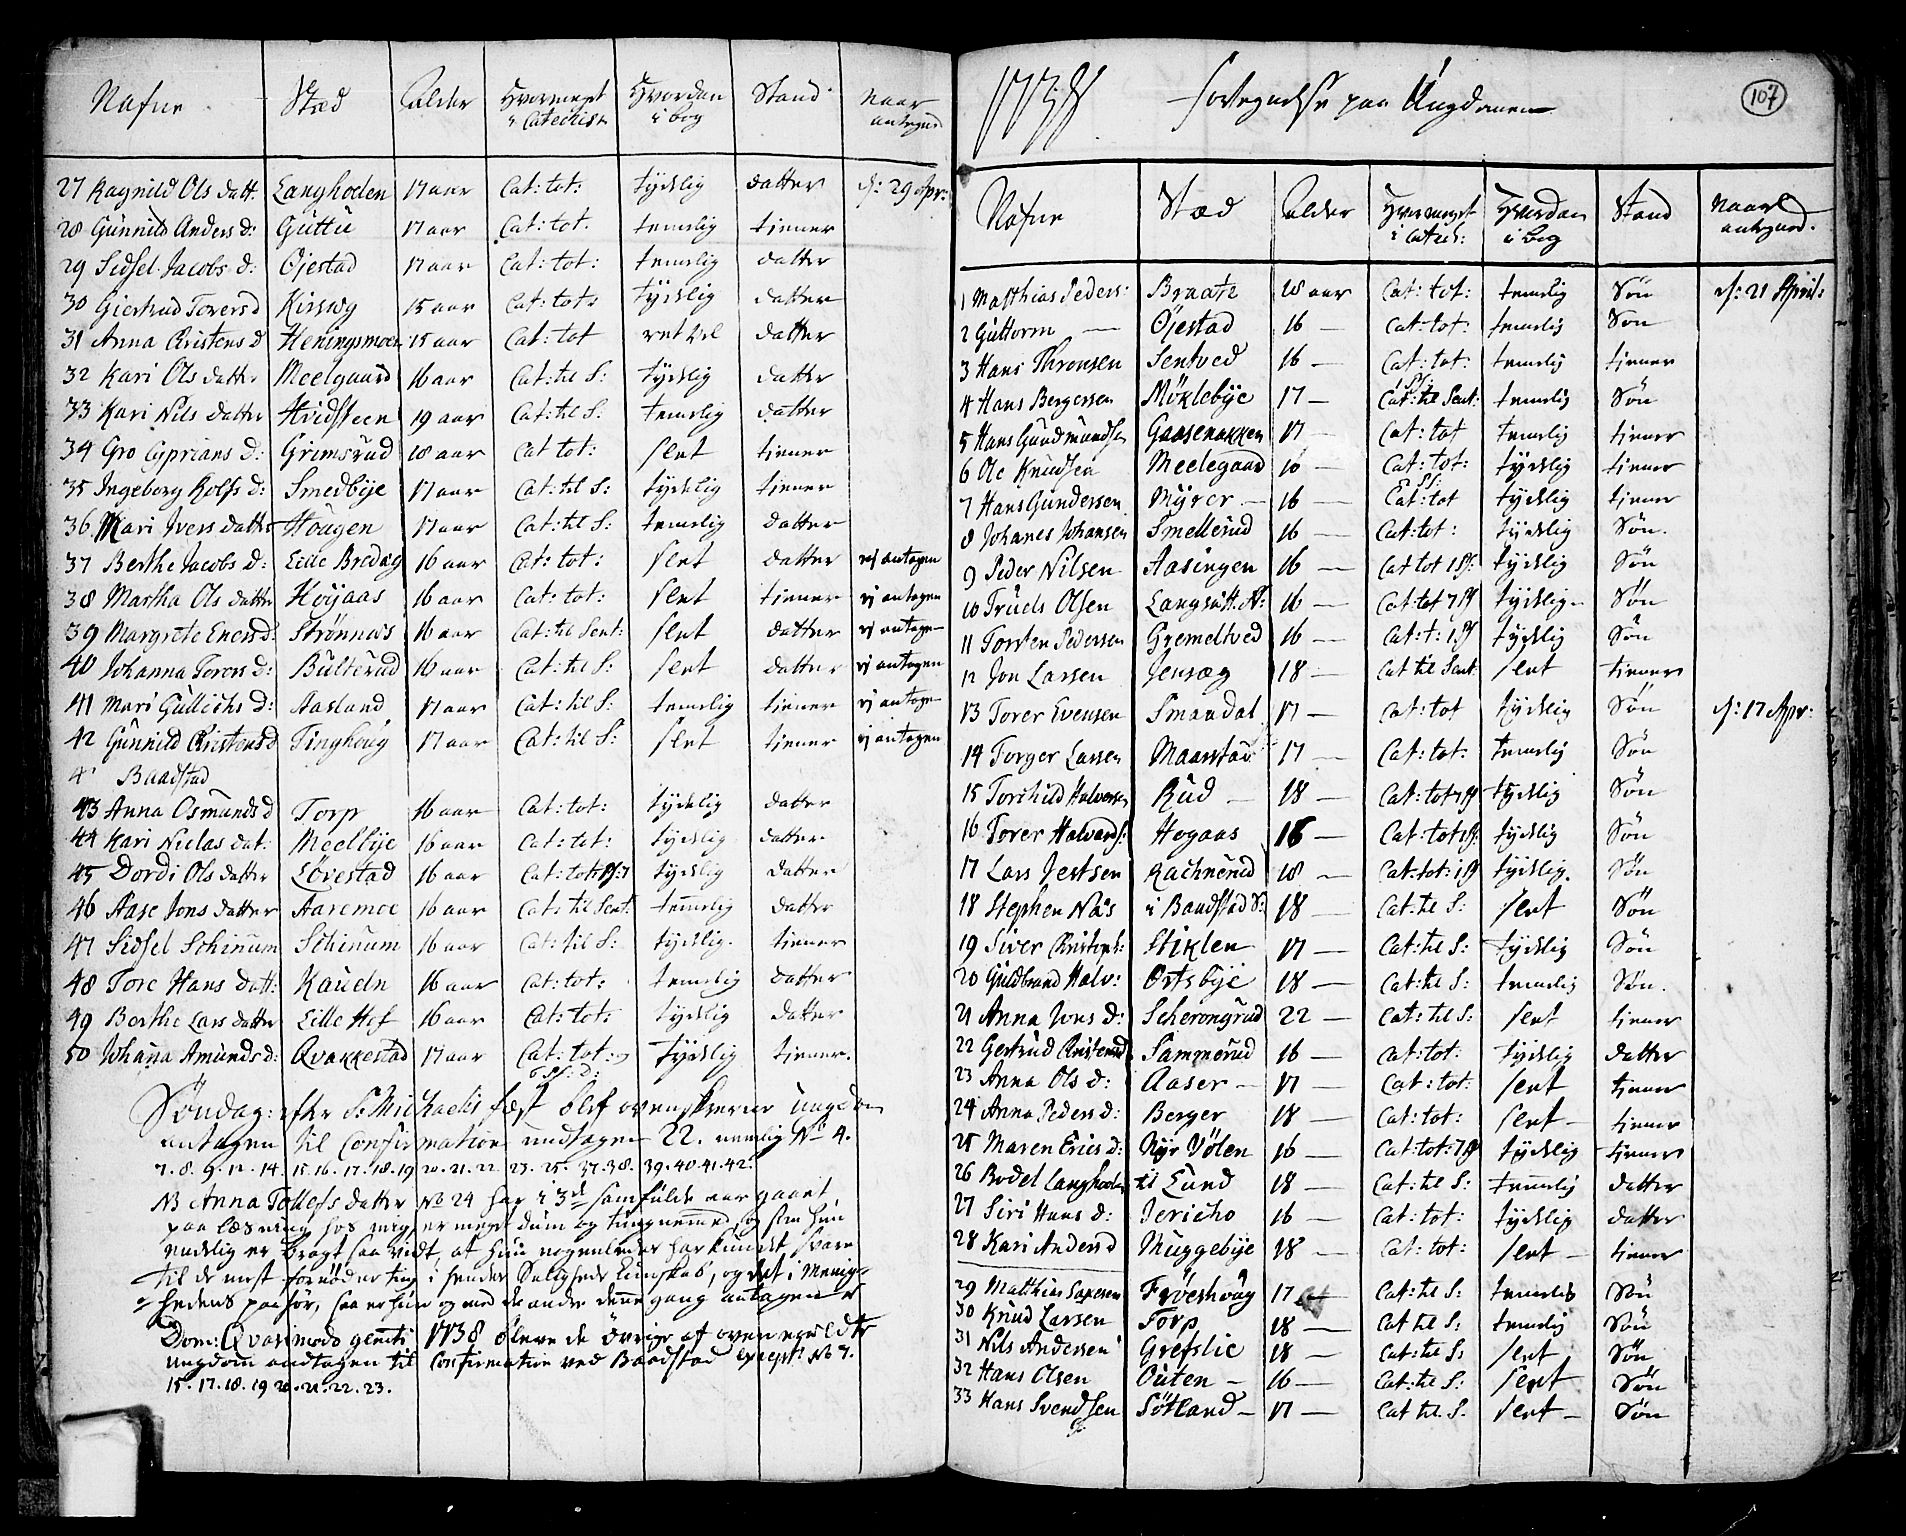 Nafne Stæd Alder Hvormeget i Catechism Hvordan i bog Stand Naar antegned
27 Ragnild Ols datt: Langhoden 17 aar Cat: tot: tydelig datter d: 29 Apr:
28 Gunnild Anders d: Guttu 17 aar Cat: tot: temelig tiener
29 Sidsel Jacobs d: Öjestad 17 aar Cat: tot: temelig datter
30 Giertrud Torers d Kirsveg 15 aar Cat: tot: tydelig datter
31 Anna Cristens d Heningsmoen 15 aar Cat: tot ret vel datter
32 Kari Ols datter Meelgaard 16 aar Cat: til S: tydelig datter
33 Kari Nils datter Hvidsteen 19 aar Cat: til S: temelig datter
34 Gro Cyprians d: Grimsrud 18 aar Cat tot: slet tiener
35 Ingeborg Rolfs d: Smedbÿe 17 aar Cat: til S: tydelig tiener
36 Mari Ivers datter Hougen 17 aar Cat: til S: temelig datter
37 Berthe Jacobs d: Lille Bredeg 16 aar Cat: tot: slet datter ej antagen
38 Martha Ols datter Höÿaas 16 aar Cat: tot: slet tiener ej antagen
39 Margrete Eners d: Strönnæs 16 aar Cat: til Sent: slet datter ej antagen
40 Johanna Torers d: Bulterud 16 aar Cat: til S: slet datter ej antagen
41 Mari Gullichs d: Aasland 17 aar Cat: til S: temelig tiener ej antagen
42 Gunnild Cristens d Tinghoug 17 aar Cat: til S: slet tiener ej antagen
Baadstad
43 Anna Osmunds d Torp 16 aar Cat: tot: tydelig datter
44 Kari Niclas dat: Meelbÿe 16 aar Cat: tot: tydelig datter
45 Dordi Ols datter Lövestad 16 aar Cat: tot: tydelig datter
46 Aase Jons datter Aaremoe 16 aar Cat: til Sent: temelig datter
47 Sidsel Schinum Schinum 16 aar Cat: til S: tydelig tiener
48 Tore Hans datt: Kaueln 16 aar Cat: tot: temelig datter
49 Berthe Lars datter Lille Hof 16 aar Cat: tot: tydelig datter
50 Johana Amunds d: Qvakkestad 17 aar Cat: tot: tydelig tiener
Söndag: efter S: Michaelis fæst blef ovenskrevne ungdom
antagen til Confirmation undtagen 22. nemlig No 4.
7. 8. 9. 12. 14. 15. 16. 17. 18. 19 20. 21. 22 23. 25. 37. 38. 39. 40. 41. 42.
NB Anna Tollefs datter No 24 har i 3de samfulde aar gaaet
paa læsning hos mig, er meget dum og tungnemed, og som hun
endelig er bragt saa vidt, at hun nogenledes har kundet svare
til de mest fornödne ting i hendes Saligheds kundskab, og det i Menig-
hedens paahör, saa er hun og med de andre denne gang antagen
Dom: Qvasimodo geniti 1738 bleve de övrige af oven meldte
ungdom antagen til Confirmation ved Baadstad except: No 7.
15. 17. 18. 19 20. 21. 22. 23.
1738 Fortegnelse paa Ungdommen
107
Nafne Stæd Alder Hvormeget i Catech: Hvordan i bog Stand Naar antegned.
1 Matthias Peders: Braate 18 aar Cat: tot: temelig Sön d: 21 April:
2 Guttorm — Öjestad 16 — Cat: tot: temelig Sön
3 Hans Thronsen Sentved 16 — Cat: tot: temelig tiener
4 Hans Bergersen Möklebÿe 17 — Cat: til Sent: temelig Sön
5 Hans Gundmundsen Gaasenakken 17 — Cat: tot temelig tiener
6 Ole Knudsen Meelegaard 16 — Cat: tot: tydelig tiener
7 Hans Gundersen Mÿrer — 16 — Cat: tot tydelig tiener
8 Johanes Johansen Smellerud 16 — Cat: tot: tydelig Sön
9 Peder Nilsen Aasingen 16 — Cat tot 1 Ps: tydelig Sön
10 Truels Olsen Langsætt. N: 16 — Cat: tot 7 Ps tydelig Sön
11 Torsten Pedersen Gremeltved 16 — Cat: t: 1 Ps tydelig Sön
12 Jon Larsen Jensæg 18 — Cat til Sent slet tiener
13 Torer Evensen Smaadal 17 — Cat: tot tydelig Sön d: 17 Apr:
14 Torger Larsen Maarstad 17 — Cat: tot: temelig Sön
15 Torchild Halvorsen Rud — 18 — Cat: tot 7 Ps tydelig Sön
16 Torer Halvards: Hogaas 16 — Cat: tot tydelig Sön
17 Lars Jertsen Rachnerud 18 — Cat: tot: 1 Ps tydelig Sön
18 Stephen Næs i Baadstad S: 18 — Cat: til S: slet Sön
19 Siver Cristens: Stiklen 17 — Cat: til S: tydelig Sön
20 Guldbrand Halv: Ortsbÿe 18 — Cat: til S: temelig Sön
21 Anna Jons d: Scherongrud 22 — Cat: til S: slet tiener
22 Gertrud Cristens d Sammerud 16 — Cat: tot: tydelig datter
23 Anna Ols d: Aaser — 17 — Cat: tot: slet tiener
24 Anna Peders d: Berger 18 — Cat: tot: slet — tiener
25 Maren Erics d: Nÿe Völen 16 — Cat: tot: 7 Ps tydelig tiener
26 Bodel Langhoden til Lund 18 — Cat: til S: temelig datter
27 Siri Hans d: Jericho 16 — Cat: tot: tydelig datter
28 Kari Anders d Muggebÿe 18 — Cat: tot: slet — tiener
29 Matthias Saxesen Fröeshoug 17 Cat: til S: temelig Sön
30 Knud Larsen Torp 18 — Cat til S: temelig Sön
31 Nils Andersen Grefslie 18 — Cat: til S: slet Sön
32 Hans Olsen Outen — 16 — Cat: til S: slet Sön
33 Hans Svendsen Sötland — 17 — Cat til S: slet — Sön